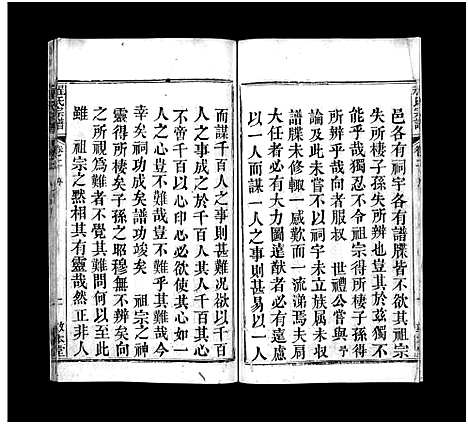 邑各有祠宇各有譜牒皆不欲其祖宗
失所棲子孫失所辨也豈其於茲獨不
能乎哉獨忍不令祖宗得所棲子孫得
所辨乎哉向者服权 世禮公嘗與予
論及此未嘗不以祠宇未立族属未聯
譜牒未修輒一感歎而一流涕焉夫肩
大任者必有大力圖遠猷者必有遠慮
以一人而謀一人之事則甚易以一人
而謀千百人之事則甚難况欲以千百
人之事成之於千百人其人千百其心
不啻千百以心印心必欲使其千百其
人之心豈不難哉豈不難乎其難哉今
幸矣祠功成矣譜功竣矣 祖宗之神
靈得所棲矣子孫之昭穆無不辨矣向
之所視為難者不覺其難問何以至此
雖 祖宗之默相其有靈哉然正非人
程氏宗譜
敦本堂